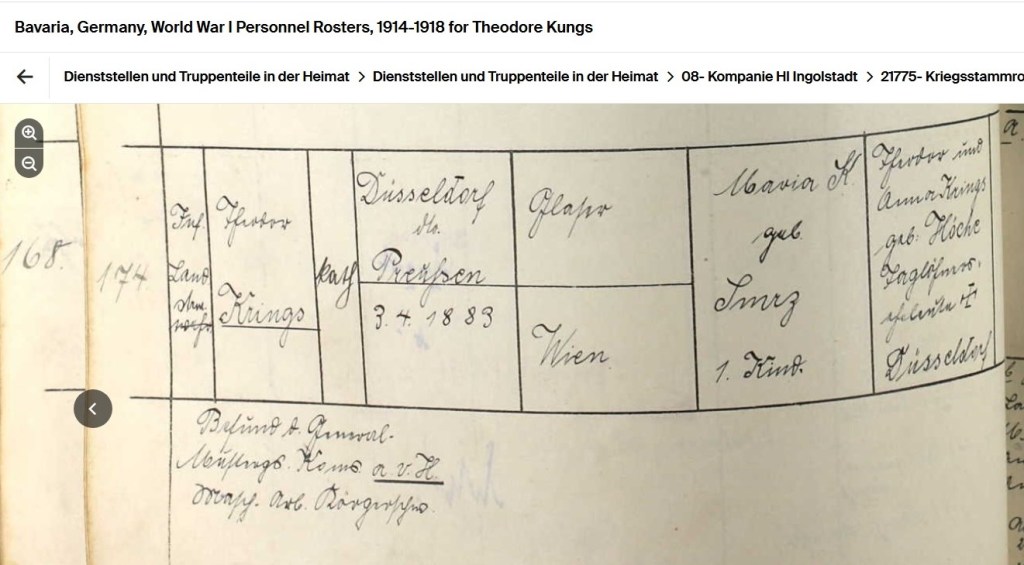 Bavaria, Germany, World War I Personnel Rosters, 1914-1918 for Theodore Kungs
Dienststellen und Truppenteile in der Heimat > Dienststellen und Truppenteile in der Heimat > 08- Kompanie HI Ingolstadt > 21775- Kriegsstammro
168.
174
Inf.
Land
Theodor
Krings
kath
Düsseldorf
dto.
Preußen
3. 4. 1883
Glaser
Wien
Maria K.
geb.
Smrz
1. Kind.
Theodor und
Anna Krings
geb. Höche
Taglöhners-
eheleute
Düsseldorf
Befund d. General-
Mustergs. Koms. a. v. H.
Masch. Arb.